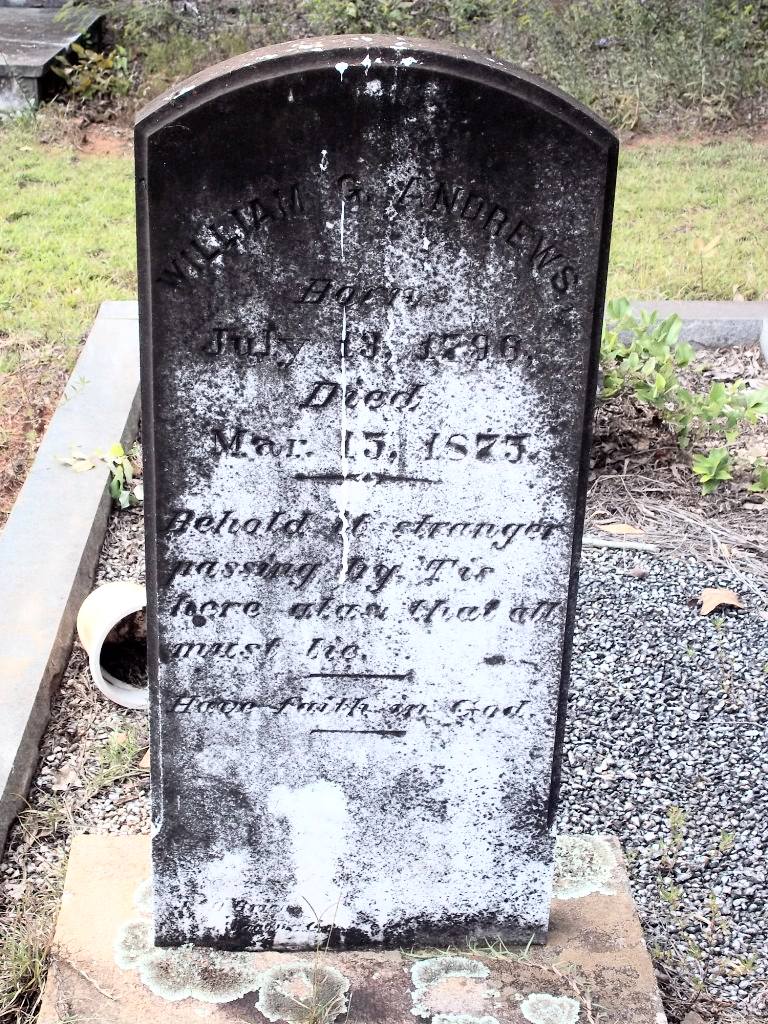 WILLIAM G. ANDREWS.
Born
July 11, 1796.
Died
Mar. 15, 1875.
Behold it stranger
passing by, Tis
here alas that all
must lie.
Have faith in God.